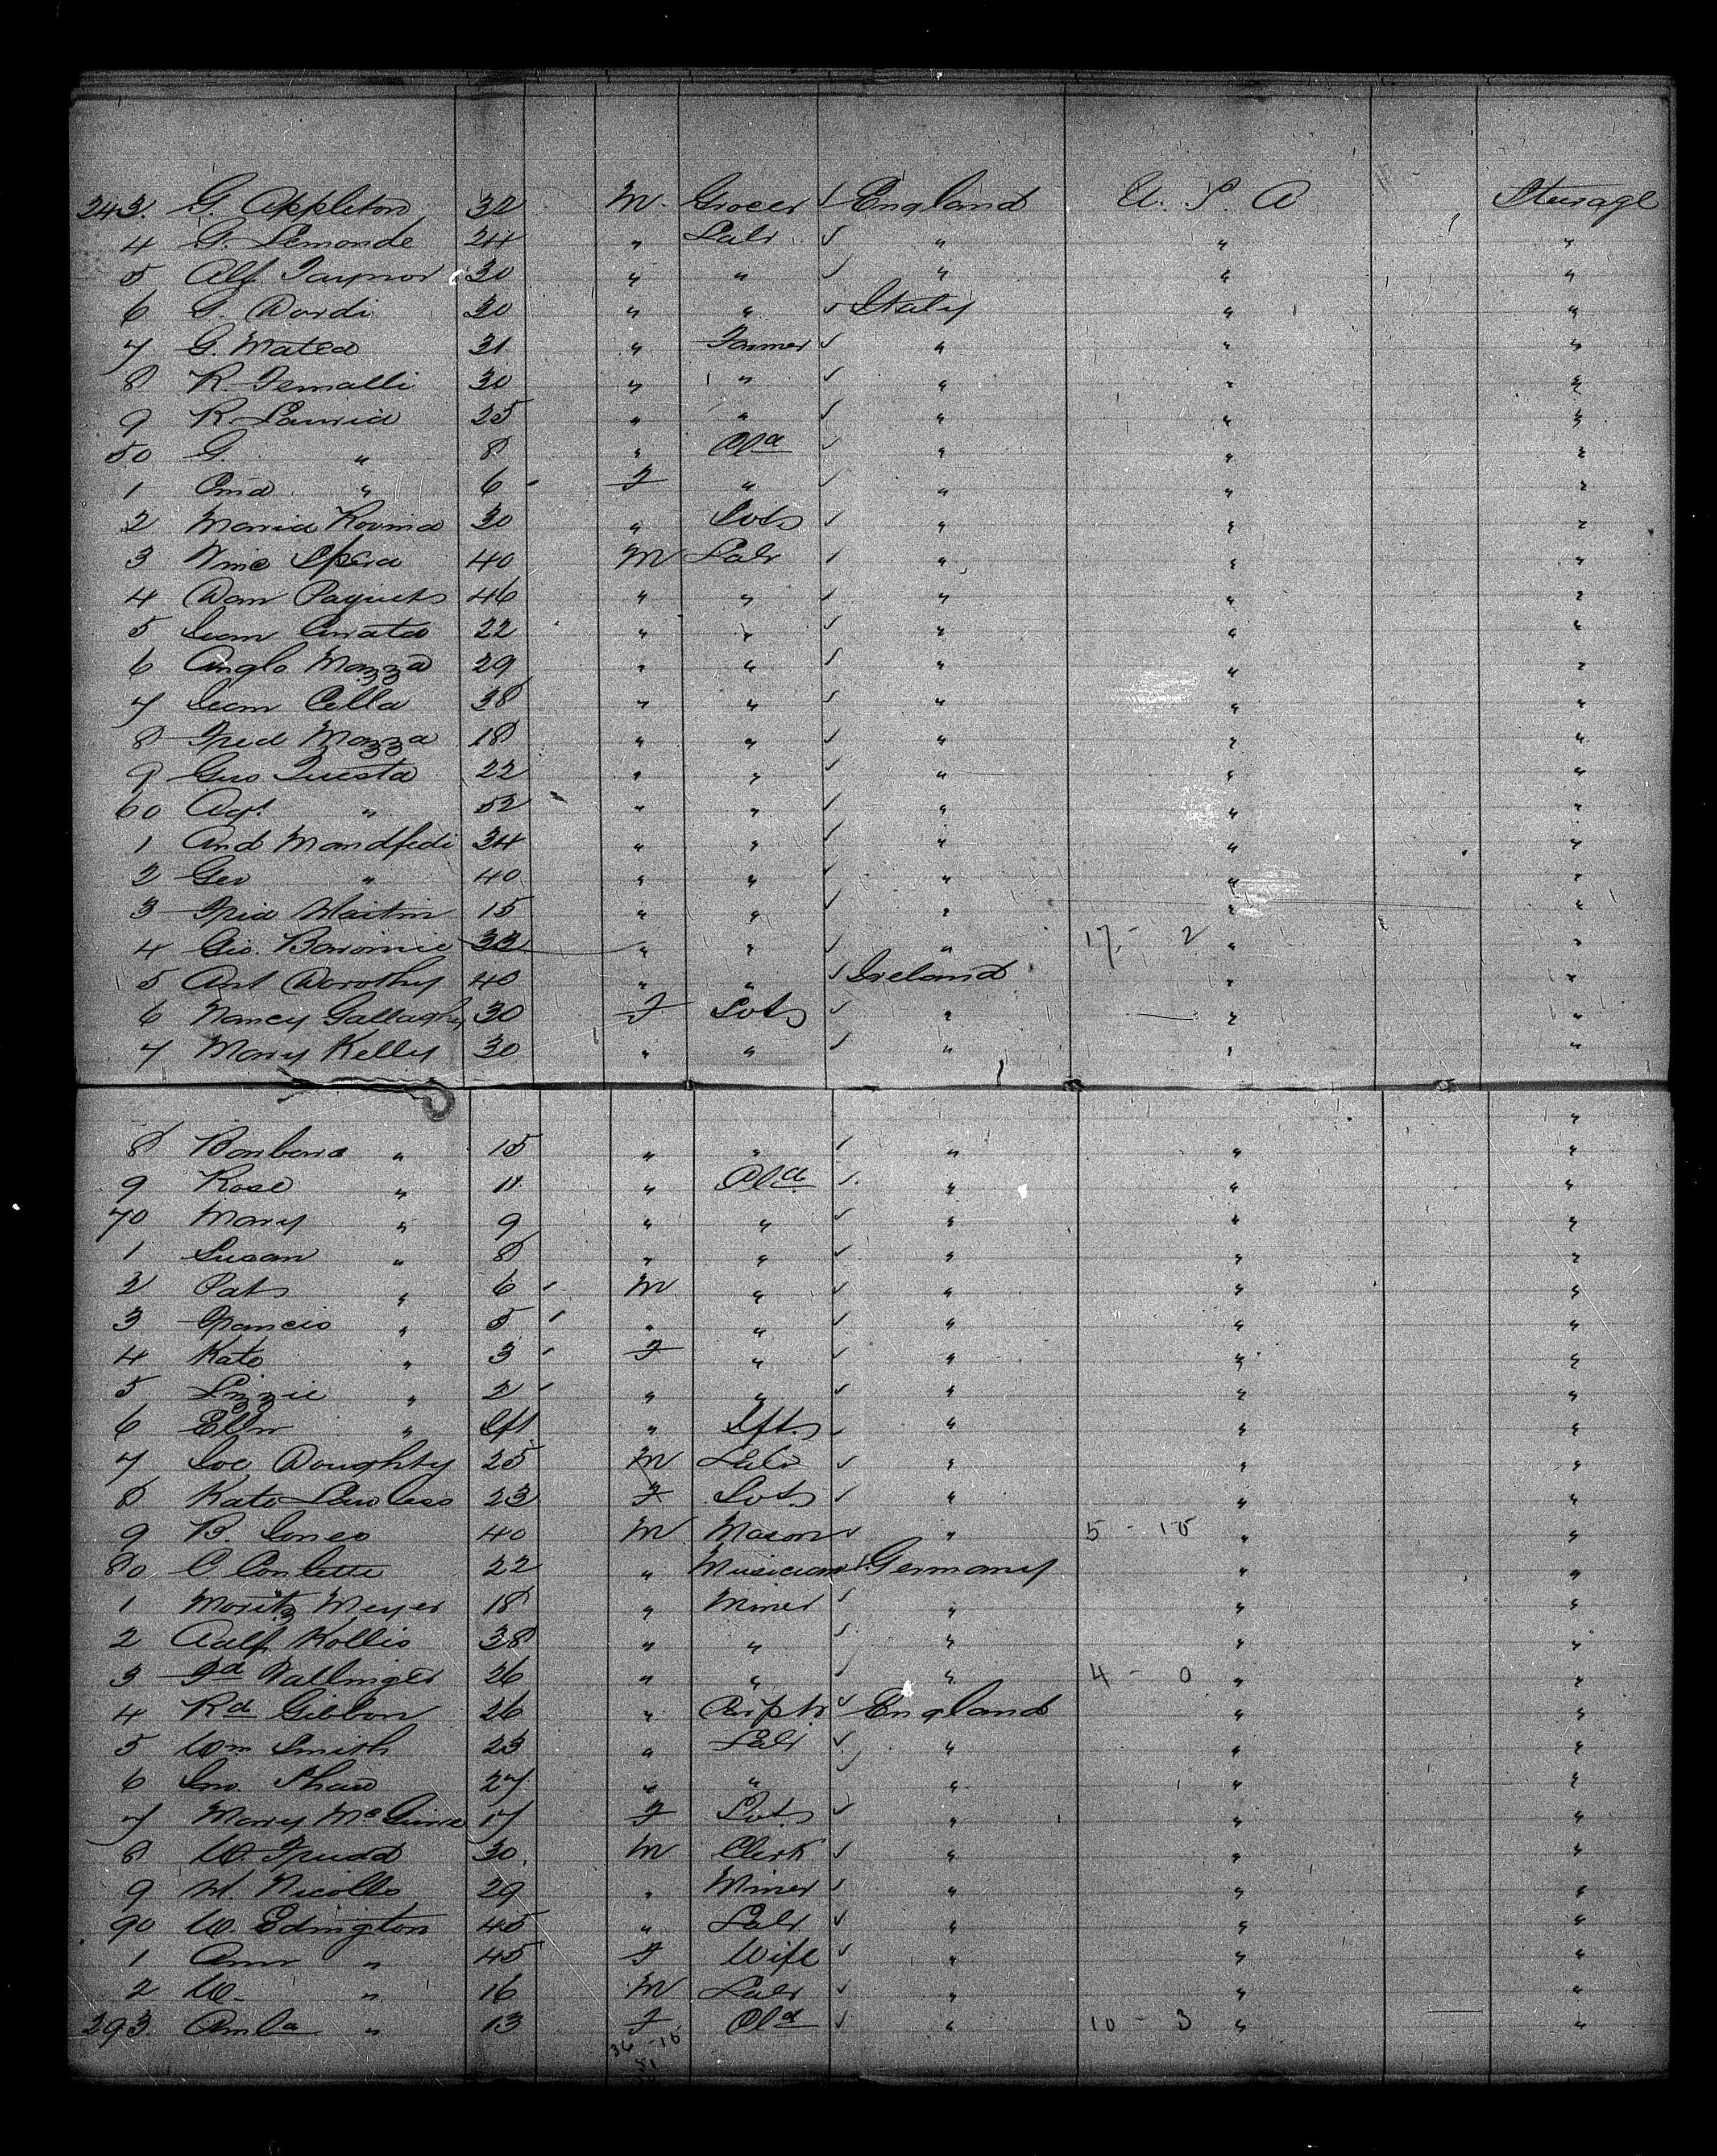 243. G. Appleton 32 M. Grocer ✓ England U. S. A Steerage
4 G. Lemonde 24 " Labr ✓ " " "
5 Alf Taynor 30 " " ✓ " " "
6 G. Dardi 30 " " ✓ Italy " "
7 G. Matea 31 " Farmer ✓ " " "
8 R. Temalli 30 " " ✓ " " "
9 R. Lauria 25 " " ✓ " " "
50 G. " 8 " " " "
1 " 6 F " ✓ " " "
2 Maria Rovina 30 " ✓ " " "
3 Vinc Spera 40 M Labr ✓ " " "
4 Dom 46 " " ✓ " " "
5 22 " " ✓ " " "
6 Anglo Mazza 29 " " ✓ " " "
7 Cella 38 " " ✓ " " "
8 Fred Mazza 18 " " ✓ " " "
9 Questa 22 " " ✓ " " "
60 Agt " 52 " " ✓ " " "
1 And Mandfedi 34 " " ✓ " " "
2 Geo " 40 " " " " "
3 Martin 15 " " ✓ " " "
4 Gio. Baromie 33 " " ✓ " 17 - 2 " "
5 Ant Dorothy 40 " " ✓ Ireland " "
6 Nancy Gallaghy 30 F ✓ " " "
7 Mary Kelly 30 " " ✓ " " "
"
8 Barbara " 15 " " ✓ " " "
9 Rose " 11 " ✓ " " "
70 Mary " 9 " " ✓ " " "
1 Susan " 8 " " ✓ " " "
2 Pat " 6 M " ✓ " " "
3 Francis " 5 " " ✓ " " "
4 Kate " 3 F " ✓ " " "
5 Lizzie " 2 " " ✓ " " "
6 Ellen " Ift " Ift ✓ " " "
7 Joe Doughty 25 M Labr ✓ " " "
8 Kate Lawless 23 F ✓ " " "
9 B. Jones 40 M Mason ✓ " 5 - 15 " "
80 C. Conlette 22 " Musician ✓ Germany " "
1 Moritz Meyer 18 " Miner ✓ " " "
2 Kollis 38 " " ✓ " " "
3 Fd Wallinger 26 " " ✓ " 4 - 0 " "
4 Rd Gibbon 26 " ✓ England " "
5 Wm Smith 23 " Labr ✓ " " "
6 Jno. Shaw 27 " " ✓ " " "
7 Mary McGuire 17 F ✓ " " "
8 W. 30 M Clerk ✓ " " "
9 W. Nicolls 29 " Miner ✓ " " "
90 W. Edington 45 " Labr ✓ " " "
1 Ann " 45 F Wife ✓ " " "
2 W. " 16 M Labr ✓ " " "
293. " 13 F ✓ " 10 - 3 " "